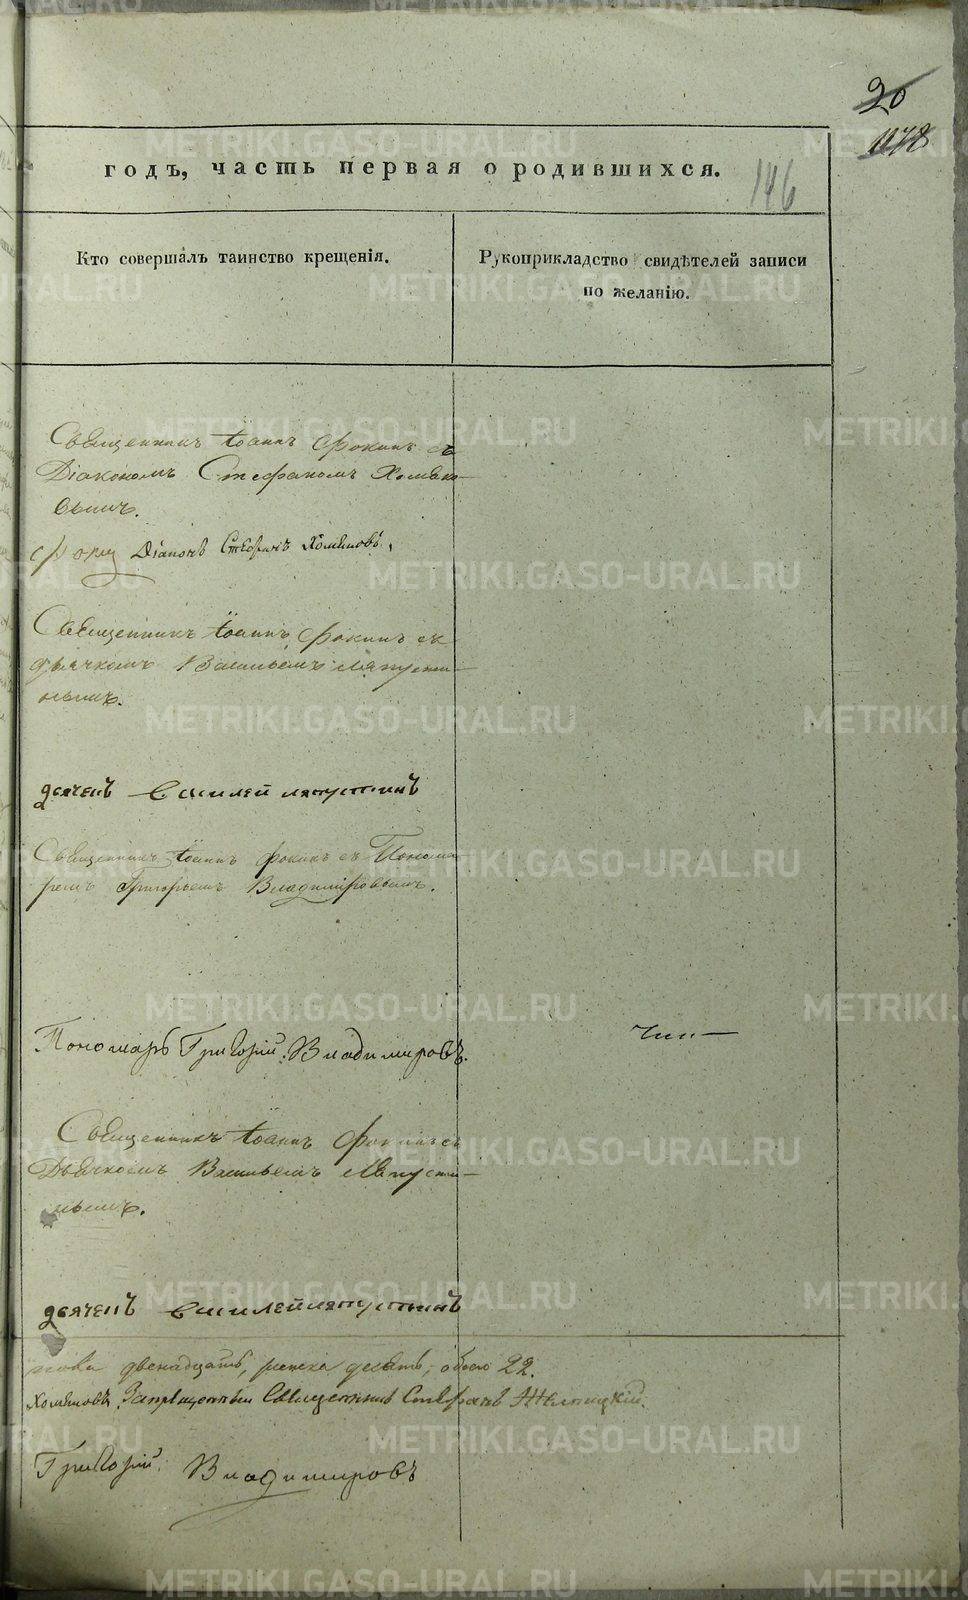 20
1178
годъ, часть первая о родившихся.
146
Кто совершалъ таинство крещенія.
Рукоприкладство свидѣтелей записи
по желанію.
Священникъ Іоаннъ Фокинъ съ
Діакономъ Стефаномъ Хомяко-
вымъ.
Діаконъ Стефанъ Хомяковъ.
Священникъ Іоаннъ Фокинъ съ
дьячкомъ Васильемъ Ляпусти-
нымъ.
дьячекъ василей ляпустинъ
Священникъ Іоаннъ Фокинъ съ Понома
ремъ Григорьемъ Владиміровымъ.
Пономарь Григорій Владимировъ.
Священникъ Іоаннъ Фокинъ съ
Дьячкомъ Васильемъ Ляпусти-
нымъ.
дьячекъ василей ляпустинъ
двенадцать, женска десять, обоего 22.
Хомяковъ. Запрещенный Священникъ Стефанъ
Григорій Владимировъ
METRIKI.GASO-URAL.RU